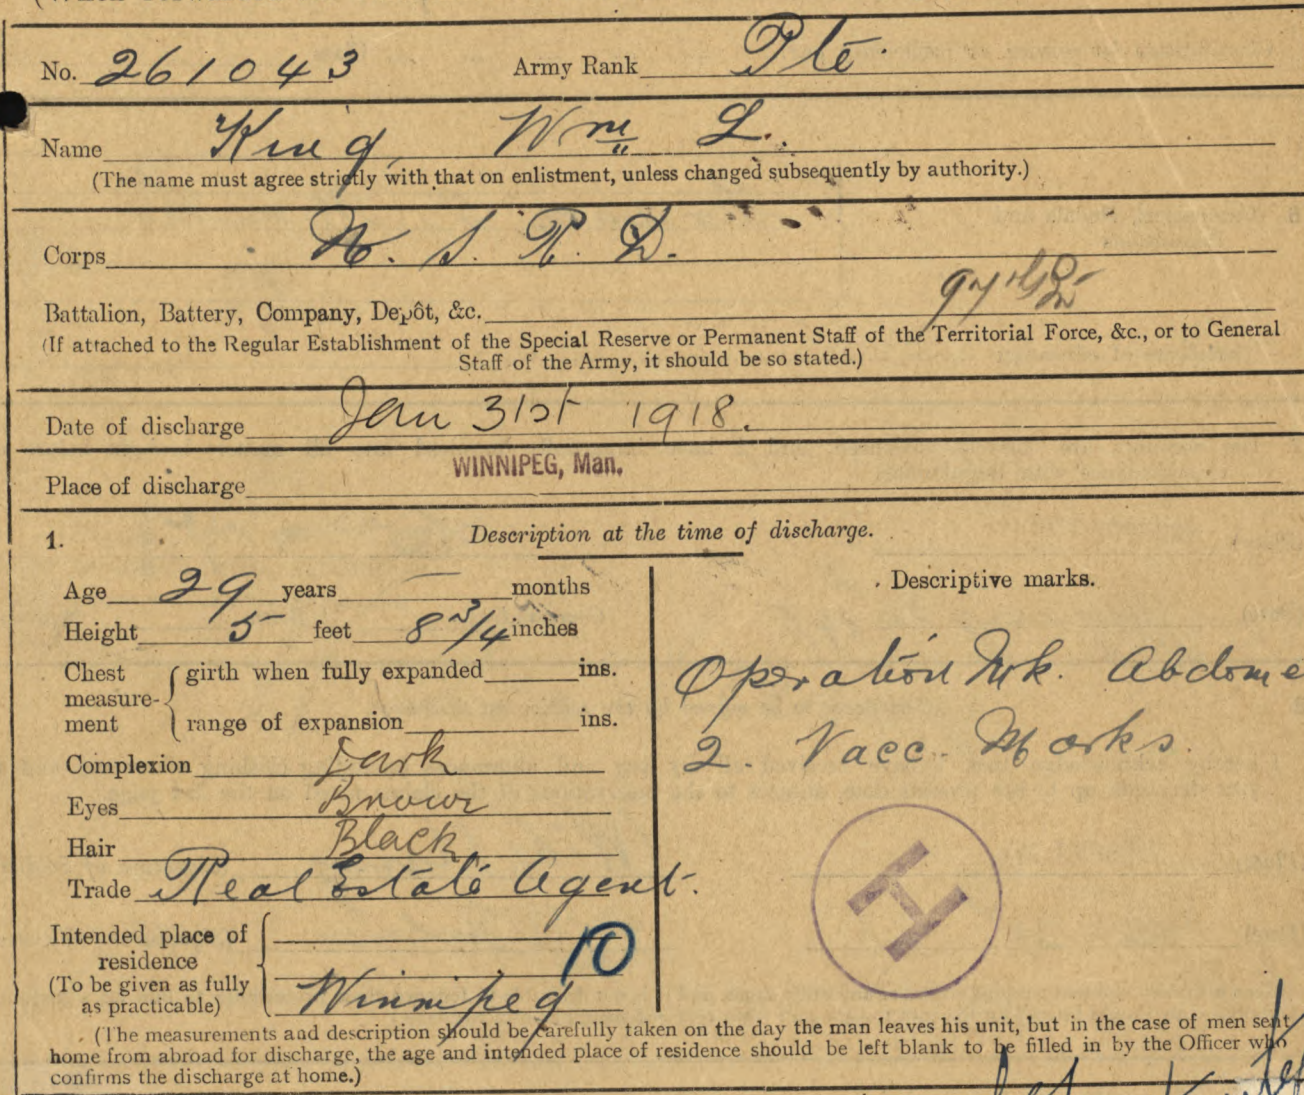 No. 261043 Army Rank Pte.
Name King Wm L.
(The name must agree strictly with that on enlistment, unless changed subsequently by authority.)
Corps W. S. R. D.
Battalion, Battery, Company, Depôt, &c. 97th
(If attached to the Regular Establishment of the Special Reserve or Permanent Staff of the Territorial Force, &c., or to General
Staff of the Army, it should be so stated.)
Date of discharge Jan 31st 1918.
Place of discharge WINNIPEG, Man.
1. Description at the time of discharge.
Age 29 years — months
Height 5 feet 8 3/4 inches
Chest measure-ment { girth when fully expanded ins.
range of expansion ins.
Complexion Dark
Eyes Brown
Hair Black
Trade Real Estate Agent.
Intended place of
residence
(To be given as fully
as practicable)
10
Winnipeg
Descriptive marks.
Operation Mk. Abdome
2. Vacc. Marks
H
(The measurements and description should be carefully taken on the day the man leaves his unit, but in the case of men sent
home from abroad for discharge, the age and intended place of residence should be left blank to be filled in by the Officer who
confirms the discharge at home.)